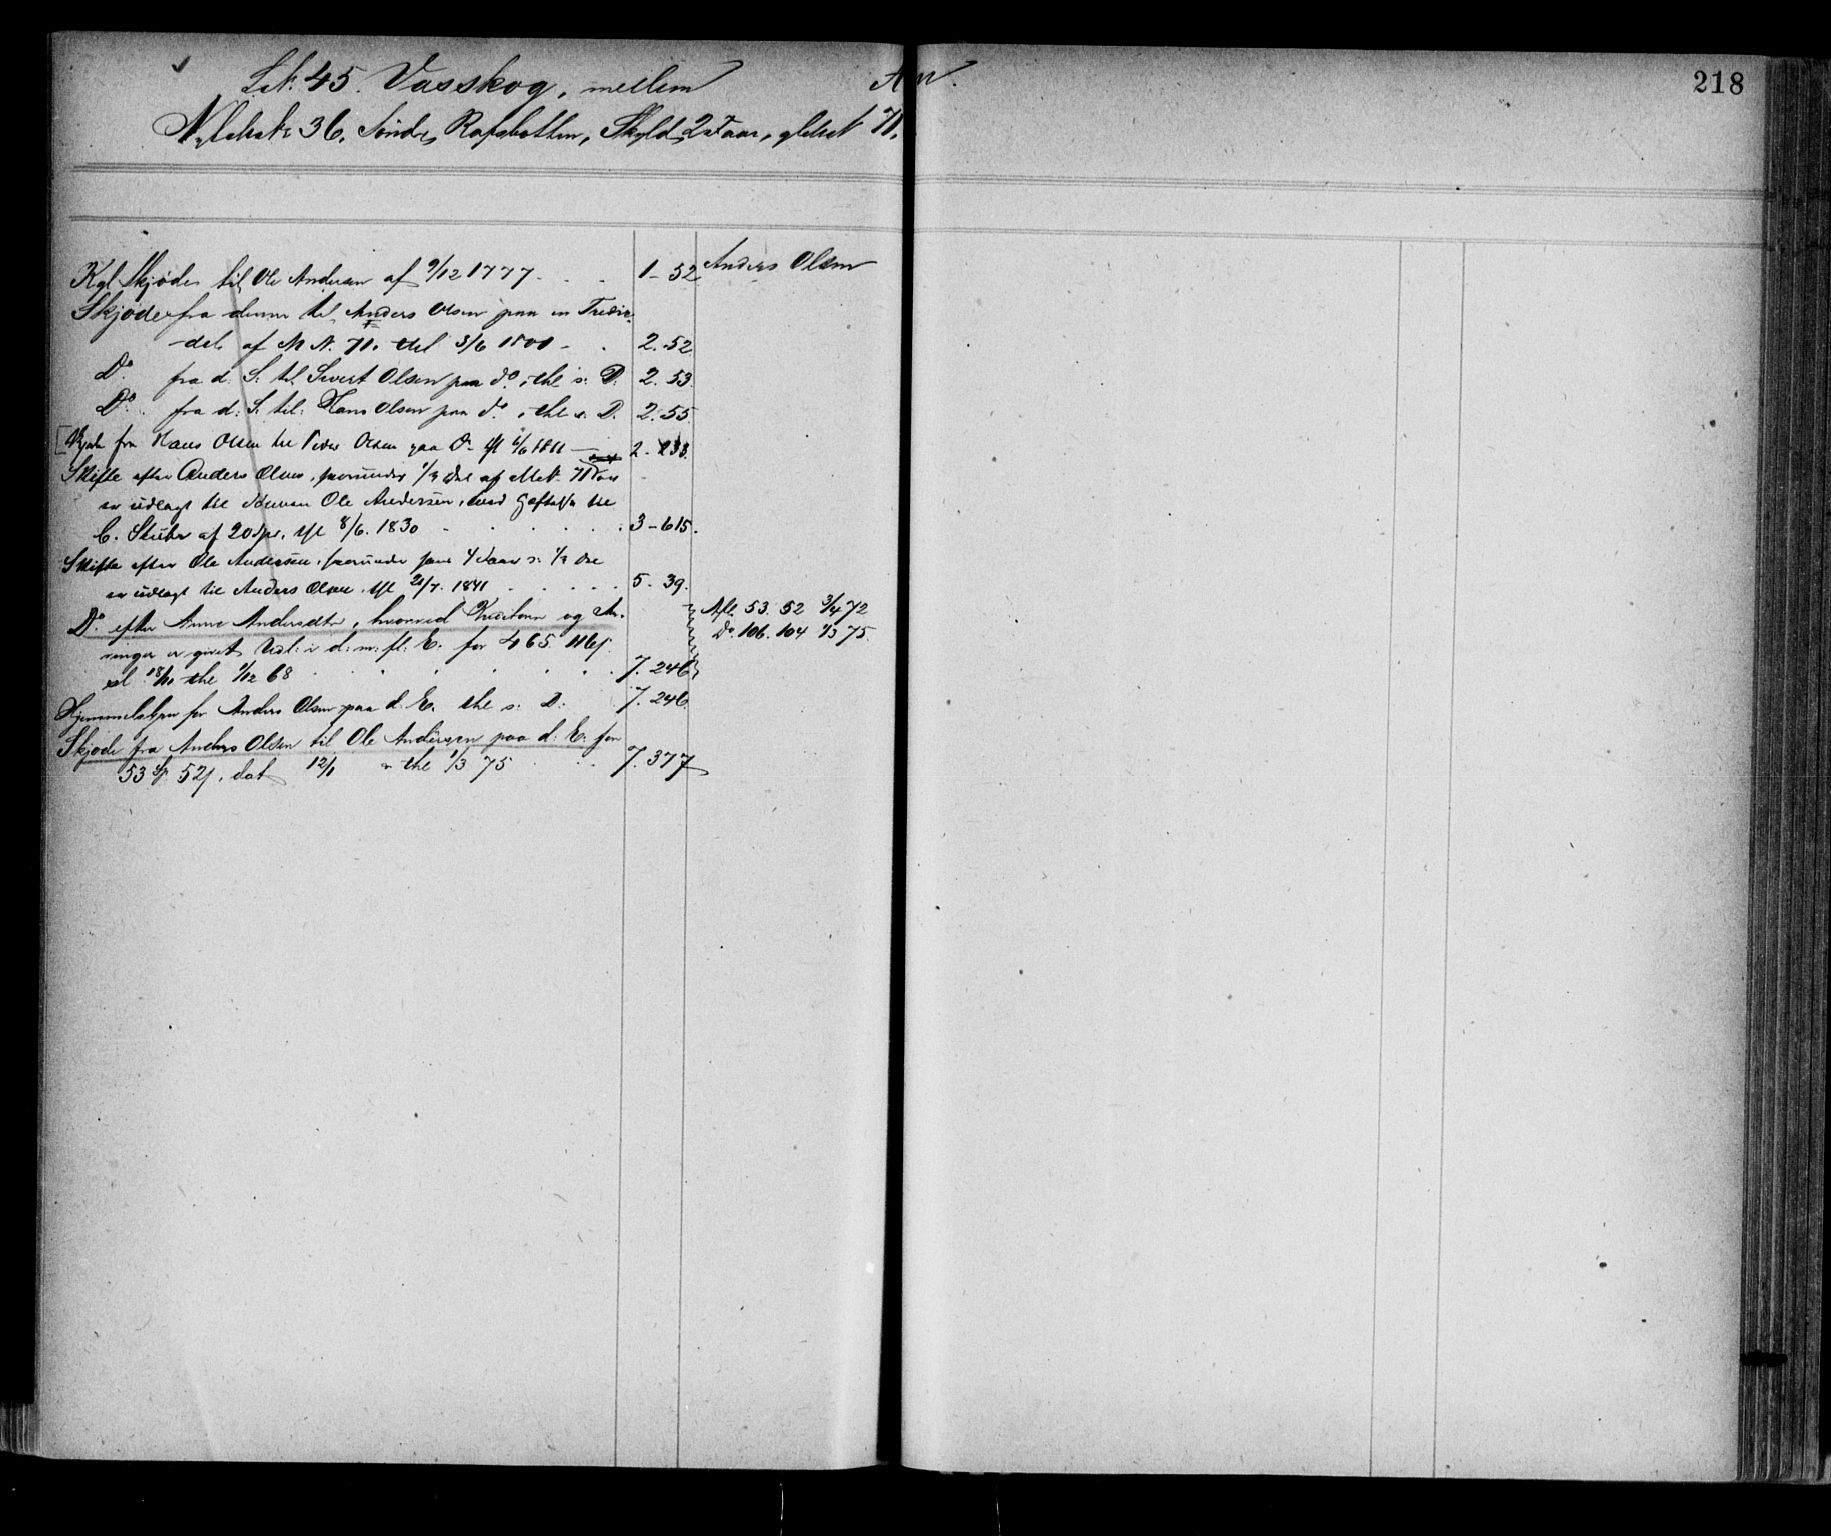 Lit. 45. Vasskog, mellem
218
Matr. 36. Søndre Rafsbotten, Skyld 2 Faar, gl. Matr. 71.
Kgl Skjøde til Ole Andersen af 9/12 1777 - . . 1 - 52 Anders Olsen
Skjøde fra denne til Anders Olsen paa en Tredie-
del af M N. 71. thl 3/6 1801 - . 2. 52
Do. fra d. S. til Sivert Olsen paa do, thl s. D. 2. 53.
Do. fra d. S. til Hans Olsen paa do, thl s. D. 2. 55.
Skjøde fra Hans Olsen til Peder Olsen paa Do 2 - 233.
Skifte efter Anders Olsen, hvorunder 1/3 Del af Mat. 71
er udlagt til Sønnen Ole Andersen, med Hæftelse til
C. Stuber af 20 Spd., thl 8/6. 1830 - . . . . 3 - 615.
Skifte efter Ole Andersen, hvorunder 1/3 Del
er udlagt til Anders Olsen, thl 21/7. 1841 . . . . 5. 39.
Do. efter Anne Andersdtr, hvorved Kreditorer og Ar-
Afl. 53. 52 3/4 72
Do. 106. 104 1/3 75.
vinger er givet Udl: i d: m: fl: E. for 465
thl 1/12 68 . . . . . 7. 246
Hjemmelsbrev for Anders Olsen paa d. E. thl s. D. 7. 246.
Skjøde fra Anders Olsen til Ole Andersen paa d: E: for
53 Sp. 52 , dat 12/1 thl 1/3 75 . . . 7. 377